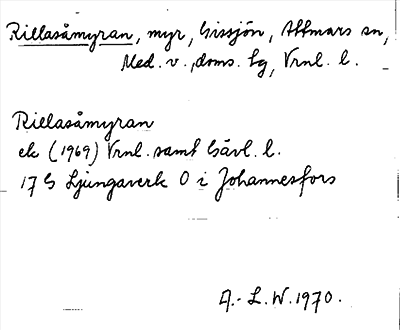 Rillasåmyran, myr, Gissjön, Attmars sn,
Med. v., doms. lg, Vrnl. l.
Rillasåmyran
ek (1969) Vrnl. samt Gävl. l.
17 G Ljungaverk O i Johannesfors
A.-L.W. 1970.